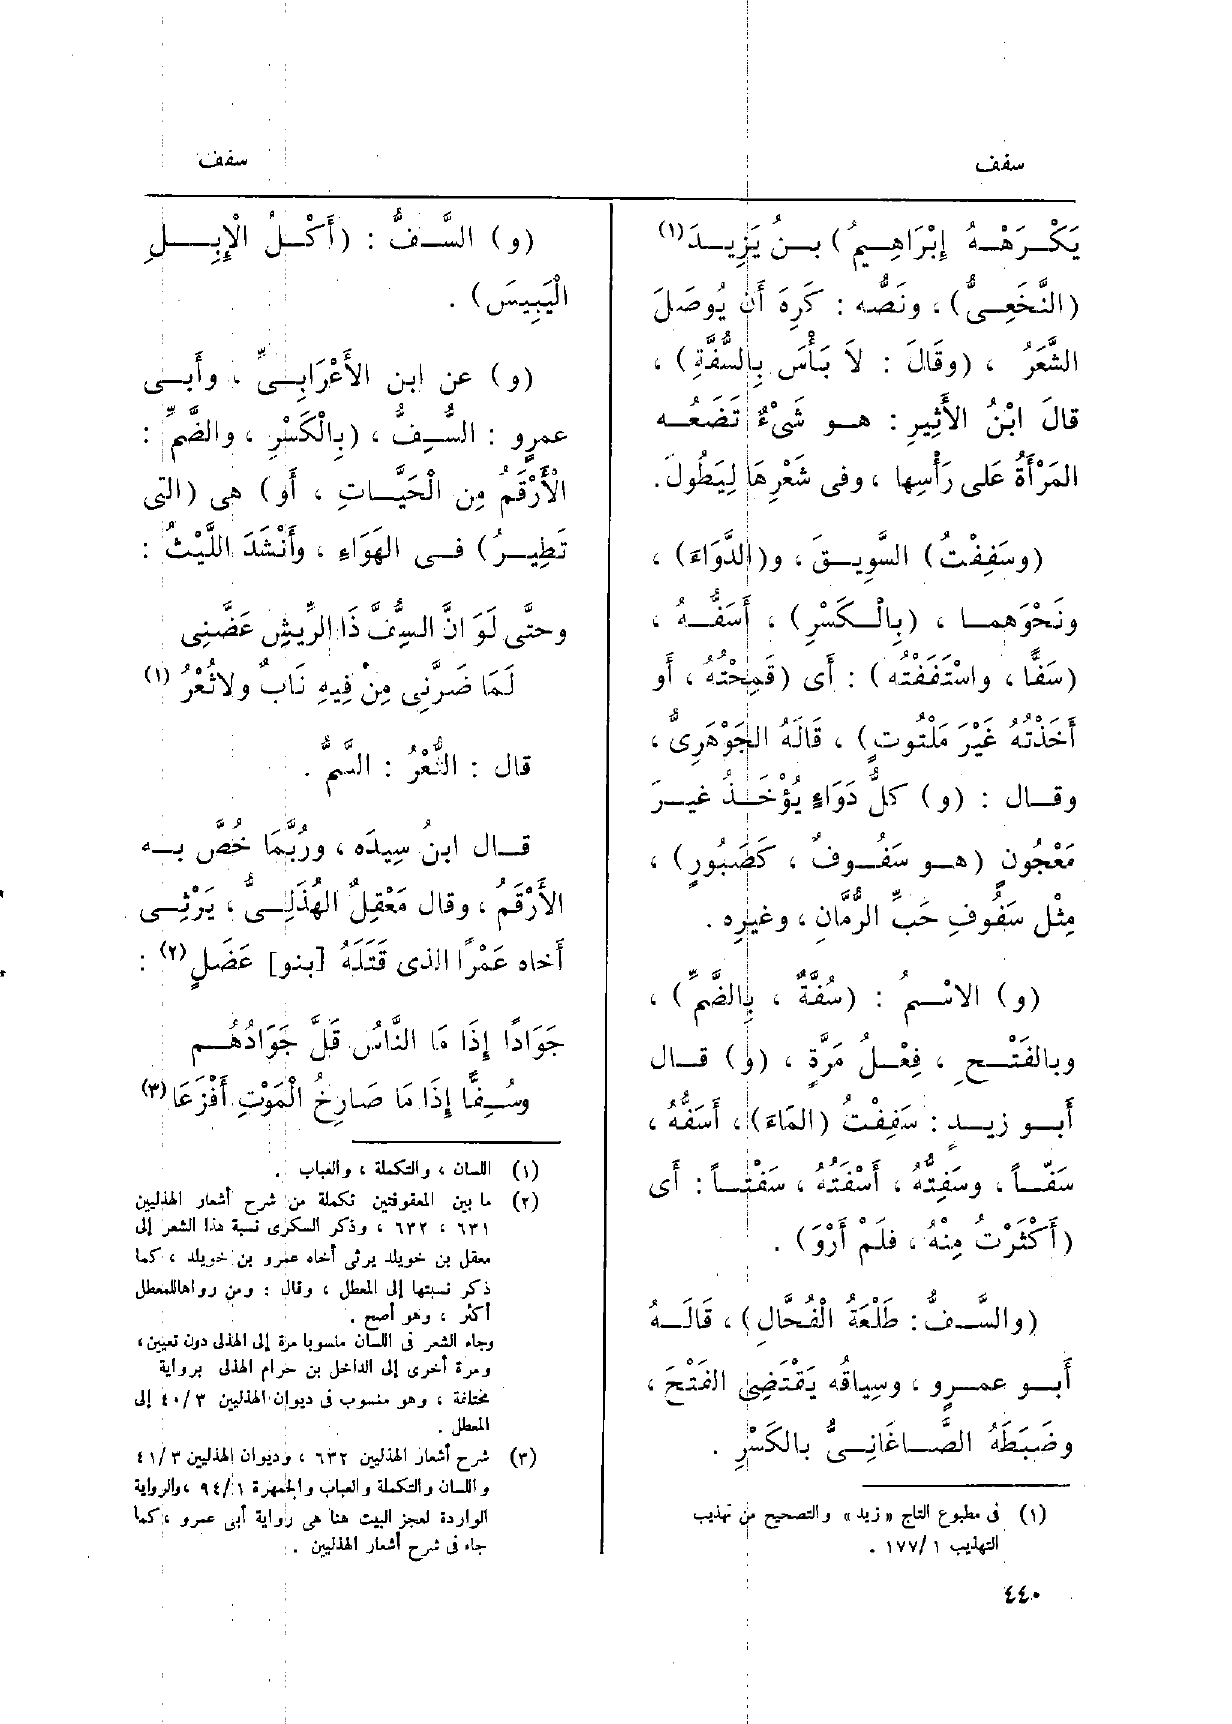 سفف
سفف
يَكْرَهْهُ إِبْرَاهِيمُ) بنُ يَزِيدَ(١)
(النَّخَعِىُّ) ، ونَصُّه : كَرِهَ أَن يُوصَلَ
الشَّعَرُ ، (وقَالَ : لاَ بَأْسَ بِالسُّفَّةِ) ،
قالَ ابْنُ الأَثِيرِ : هو شَىْءٌ تَضَعُه
المَرْأَةُ عَلى رَأْسِها ، وفى شَعْرِهَا لِيَطُولَ.
(وسَفِفْتُ) السَّوِيقَ ، و(الدَّوَاءَ) ،
ونَحْوَهما ، (بِالْكَسْرِ) ، أَسَفُّهُ ،
(سَفًّا ، واسْتَفَفْتُه) : أَى (قَمِحْتُهُ ، أَو
أَخَذْتُهُ غَيْرَ مَلْتُوتٍ) ، قَالَهُ الجَوْهَرِىُّ ،
وقال : (و) كلُّ دَوَاءٍ يُؤْخَذُ غيرَ
مَعْجُونٍ (هو سَفُوفٌ ، كَصَبُورٍ) ،
مِثْل سَفُوفِ حَبِّ الرُّمَّانِ ، وغيرِه .
(و) الاسْمُ : (سُفَّةٌ ، بِالضَّمِّ) ،
وبالفَتْحِ ، فِعْلُ مَرَّةٍ ، (و) قال
أَبو زيد : سَفِفْتُ (المَاءَ) ، أَسَفُّهُ ،
سَفّاً ، وسَفِتُّهُ ، أَسْفَتُهُ ، سَفْتاً : أَى
(أَكْثَرْتُ مِنْهُ ، فلَمْ أَرْوَ) .
(والسَّفُّ : طَلْعَةُ الْفُحَّالِ) ، قَالَهُ
أَبو عمرو ، وسِياقُه يَقْتَضِى الفَتْحَ ،
وضَبَطَهُ الصَّاغَانِىُّ بالكَسْرِ .
(١) فى مطبوع التاج «زيد» والتصحيح من تهذيب
التهذيب ١/١٧٧ .
(و) السَّفُّ : (أَكْلُ الْإِبِلِ
الْيَبِيسَ) .
(و) عن ابن الأَعْرَابِىِّ ، وأَبى
عمرٍو : السُّفُّ ، (بِالْكَسْرِ ، والضَّمِّ :
الْأَرْقَمُ مِن الْحَيَّاتِ ، أَو) هى (التى
تَطِيرُ) فى الهَوَاءِ ، وأَنْشَدَ اللَّيْثُ :
وحتَّى لَوَ انَّ السُِّفَّ ذَا الرِّيشِ عَضَّنِى
لَمَا ضَرَّنِى مِنْ فِيهِ نَابٌ ولاثُعْرُ (١)
قال : الثُّعْرُ : السَّمُّ .
قال ابنُ سِيدَه ، ورُبَّمَا خُصَّ به
الأَرْقَمُ ، وقال مَعْقِلٌ الهُذَلِىُّ ، يَرْثِى
أَخاه عَمْرًا الذى قَتَلَهُ [بنو] عَضَلٍ(٢) :
جَوَادًا إِذَا مَا النَّاسُ قَلَّ جَوَادُهُم
وسُِفًّا إِذَا مَا صَارِخُ الْمَوْتِ أَفْزَعَا (٣)
(١) اللسان ، والتكملة ، والعباب .
(٢) ما بين المعقوفتين تكملة من شرح أشعار الهذليين
٦٣١ ، ٦٣٢ ، وذكر السكرى نسبة هذا الشعر إلى
معقل بن خويلد يرثى أخاه عمرو بن خويلد ، كما
ذكر نسبتها إلى المعطل ، وقال : ومن رواهاللمعطل
أكثر ، وهو أصح .
وجاء الشعر فى اللسان منسوبا مرة إلى الهذلى دون تعيين ،
ومرة أخرى إلى الداخل بن حرام الهذلى برواية
مختلفة ، وهو منسوب فى ديوان الهذليين ٣/٤٠ إلى
المعطل .
(٣) شرح أشعار الهذليين ٦٣٢ ، وديوان الهذليين ٣/٤١
واللسان والتكملة والعباب والجمهرة ١/٩٤ ،والرواية
الواردة لعجز البيت هنا هى رواية أبى عمرو ، كما
جاء فى شرح أشعار الهذليين .
٤٤٠